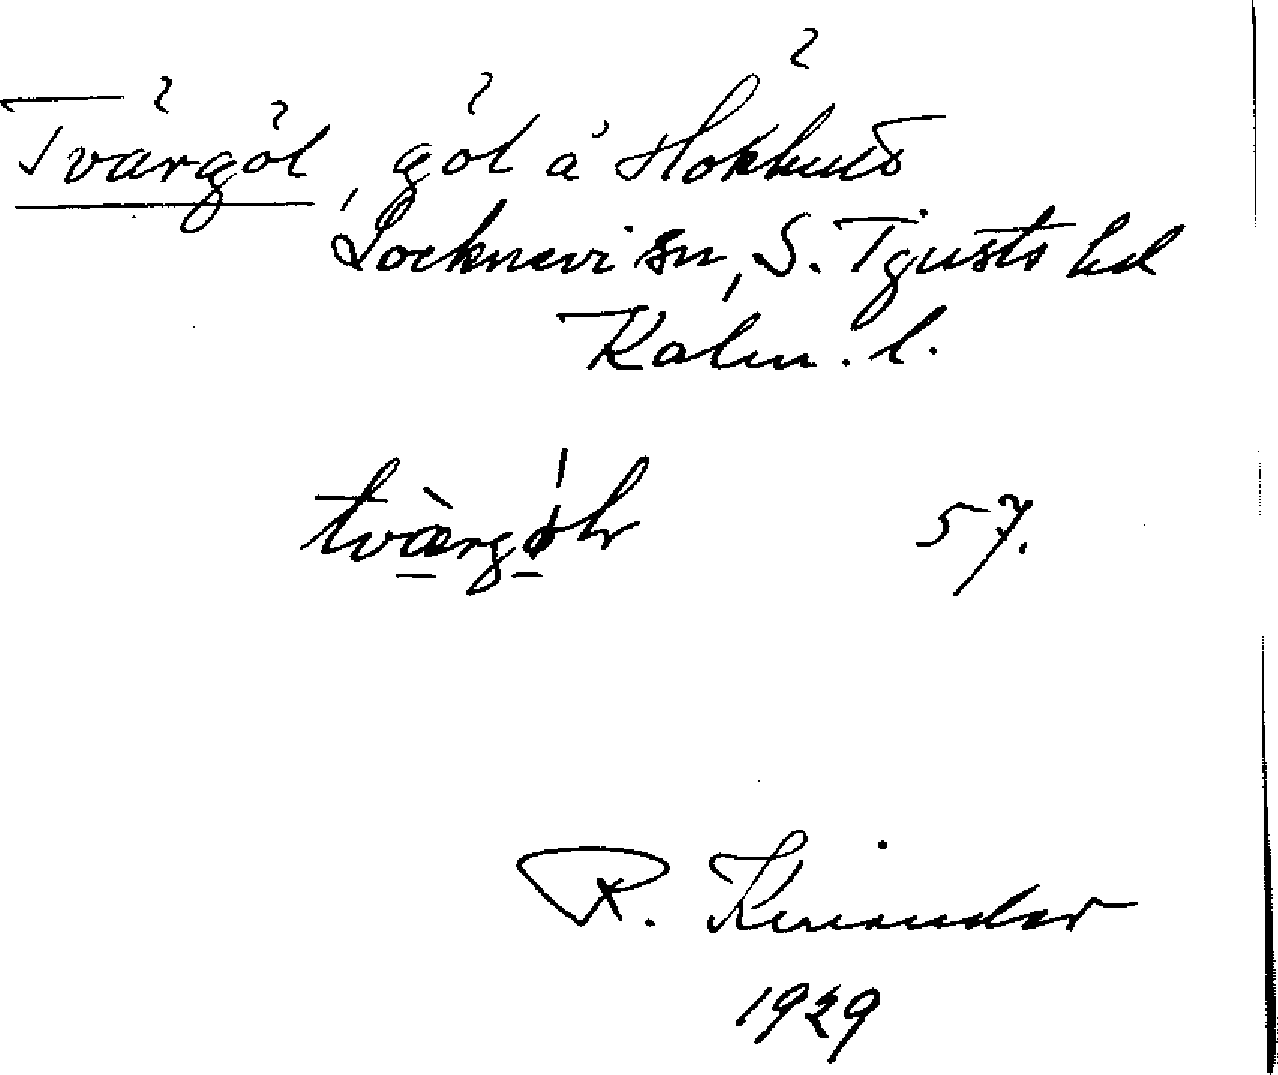 Tvärgöl, göl å Hökhult
Locknevi sn, S. Tjusts hd
Kalm. l.
tværgöl 57.
R. Kinander
1929